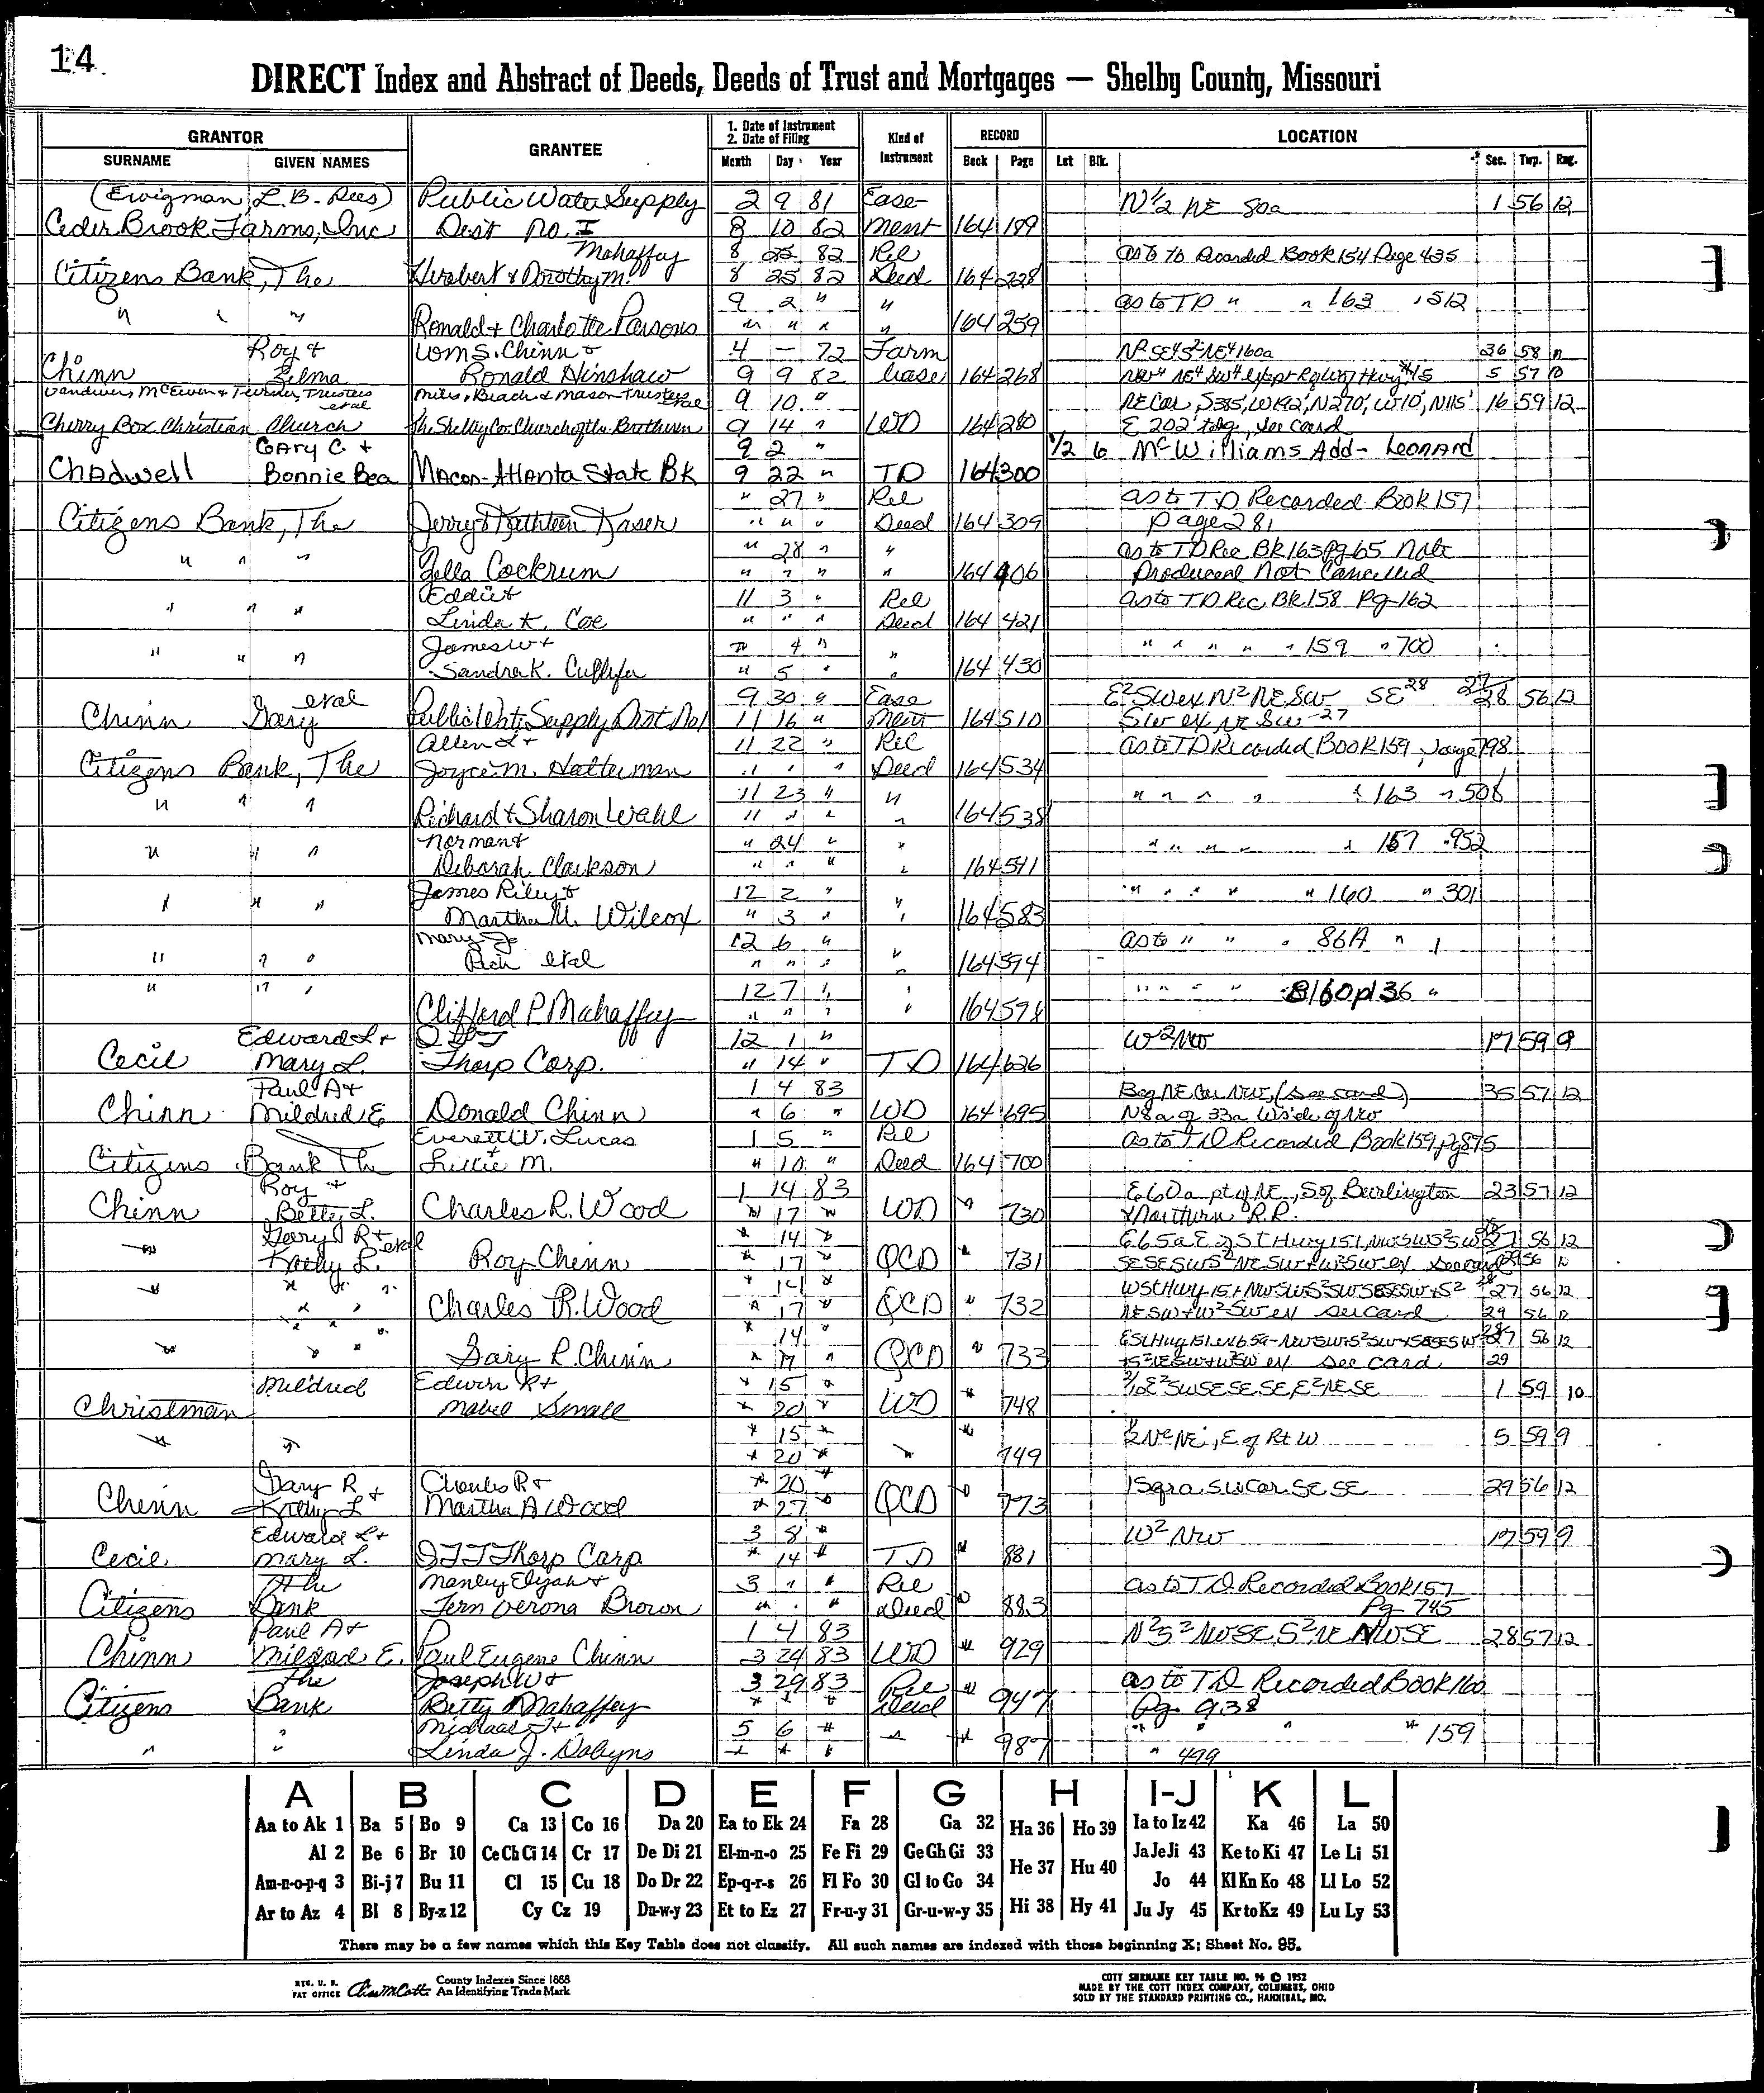 14
DIRECT Index and Abstract of Deeds, Deeds of Trust and Mortgages — Shelby County, Missouri
GRANTOR GRANTEE 1. Date of Instrument 2. Date of Filing Kind of Instrument RECORD LOCATION
SURNAME GIVEN NAMES Month Day Year Book Page Lot Blk. Sec. Twp. Rng.
(Ewigman, L. B. - Pres) Public Water Supply 2 9 81 Ease- N½ NE 80a 1 56 12
Ceder Brook Farms, Inc Dist No. I 8 10 82 ment 164 189
Mahaffey 8 25 82 Rel as to TD Recorded Book 154 Page 435
Citizens Bank, The Herbert & Dorothy M. 8 25 82 Deed 164 228
9 2 " " as to TD " " 163 " 512
" " " Ronald & Charlotte Parsons " " " " 164 259
Roy & Wm S. Chinn & 4 — 72 Farm 36 58
Chinn Zelma Ronald Hinshaw 9 9 82 Lease 164 268 5 57
Vandiver, McEwen & Turner, Trustees etal Miles, Beach & Mason Trustees etal 9 10 " NE Cor, S385', W192', N270', W10', N115' 16 59 12
Cherry Box Christian Church The Shelby Co. Church of the Brethern 9 14 " WD 164 280 E 202' tobg, see card
Gary C. & 9 2 " 1/2 6 McWilliams Add - Leonard
Chadwell Bonnie Bea Macon-Atlanta State Bk 9 22 " TD 164 300
" 27 " Rel as to T.D Recorded Book 157
Citizens Bank, The Jerry & Kathleen Kaser " " " Deed 164 309 page 281
" 28 " " as to TD Rec BK 163 Pg 65 Note
" " " Zella Cockrum " " " " 164 406 Produced Not Cancelled
Eddie & 11 3 " Rel as to TD Rec BK 158 Pg 162
" " " Linda K. Coe " " " Deed 164 421
James W & " 4 " " " " " " 159 " 700
" " " Sandra K. " 5 " " 164 430
etal 9 30 " Ease E²SW ex N² NE SW SE 28 27
Chinn Gary Public Wat. Supply Dist No 1 11 16 " ment 164 510 SW ex NE SW 27 28 56 12
Allen L & 11 22 " Rel as to TD Recorded Book 159, page 798
Citizens Bank, The Joyce M. Hatterman " " " Deed 164 534
11 23 " " " " " " " 163 " 508
" " " Richard & Sharon Wahl " " " " 164 538
Norman & " 24 " " " " " " " 157 " 952
" " " Deborah Clarkson " " " " 164 541
James Riley & 12 2 " " " " " " " 160 " 301
" " " Martha M. Wilcox " 3 " " 164 583
Mary Jo 12 6 " as to " " " 86A " 1
" " " Rich etal " " " " 164 594
12 7 " " " " " " B160 p136 "
" " " Clifford P. Mahaffey " " " " 164 598
Edward L & ITT 12 1 " W²NW 17 59 9
Cecil Mary L. Thorp Corp. " 14 " TD 164 626
Paul A & 1 4 83 Beg NE Cor NW, (see card) 35 57 12
Chinn Mildred E Donald Chinn " 6 " WD 164 695 N8a of 33a W side of NW
Everett W. Lucas 1 5 " Rel as to TD Recorded Book 159, Pg 875
Citizens Bank The & Lillie M. " 10 " Deed 164 700
Roy & 1 14 83 E60a pt of NE, S of Burlington 23 57 12
Chinn Betty L. Charles R. Wood " 17 " WD " 730 & Northern R.R.
Gary R & etal " 14 " E65a E of St Hwy 151, 56 12
" Kathy L. Roy Chinn " 17 " QCD " 731 see card
" " " " 14 " 27 56 12
" " Charles R. Wood " 17 " QCD " 732 NESW & W²SW ex see card 29 56 12
" " " " 14 " 27 56 12
" " " Gary R. Chinn " 17 " QCD " 733 see card 29
Mildred Edwin R & " 15 " 1 59 10
Christman Mabel Small " 20 " WD " 748
" 15 " " , E of Rt W 5 59 9
" " " 20 " " 749
Gary R & Charles R & " 20 " 1 Sqra, SW Cor SE SE 29 56 12
Chinn Kathy L Martha A Wood " 27 " QCD " 773
Edward L & 3 8 " W² NW 17 59 9
Cecil Mary L. ITT Thorp Corp " 14 " TD " 881
The Manley Elijah & 3 " " Rel as to T.D Recorded Book 157
Citizens Bank Fern Verona Brown " " " Deed " 883 Pg 745
Paul A & 1 4 83 N²S²NWSE, S²NE NWSE 28 57 12
Chinn Mildred E. Paul Eugene Chinn 3 24 83 WD " 929
The Joseph W & 3 29 83 Rel as to T.D Recorded Book 160
Citizens Bank Betty Mahaffey " " " Deed " 947 Pg. 938
Michael & 5 6 " " " " " 159
" " Linda J. Dobyns " " " " " 987 " 499
A B C D E F G H I-J K L
Aa to Ak 1 Ba 5 Bo 9 Ca 13 Co 16 Da 20 Ea to Ek 24 Fa 28 Ga 32 Ha 36 Ho 39 Ia to Iz 42 Ka 46 La 50
Al 2 Be 6 Br 10 Ce Ch Ci 14 Cr 17 De Di 21 El-m-n-o 25 Fe Fi 29 Ge Gh Gi 33 He 37 Hu 40 Ja Je Ji 43 Ke to Ki 47 Le Li 51
Am-n-o-p-q 3 Bi-j 7 Bu 11 Cl 15 Cu 18 Do Dr 22 Ep-q-r-s 26 Fl Fo 30 Gl to Go 34 Jo 44 Kl Kn Ko 48 Ll Lo 52
Ar to Az 4 Bl 8 By-z 12 Cy Cz 19 Du-w-y 23 Et to Ez 27 Fr-u-y 31 Gr-u-w-y 35 Hi 38 Hy 41 Ju Jy 45 Kr to Kz 49 Lu Ly 53
There may be a few names which this Key Table does not classify. All such names are indexed with those beginning X; Sheet No. 95.
REG. U. S. PAT OFFICE County Indexes Since 1888 An Identifying Trade Mark
COTT SURNAME KEY TABLE NO. 96 © 1952
MADE BY THE COTT INDEX COMPANY, COLUMBUS, OHIO
SOLD BY THE STANDARD PRINTING CO., HANNIBAL, MO.